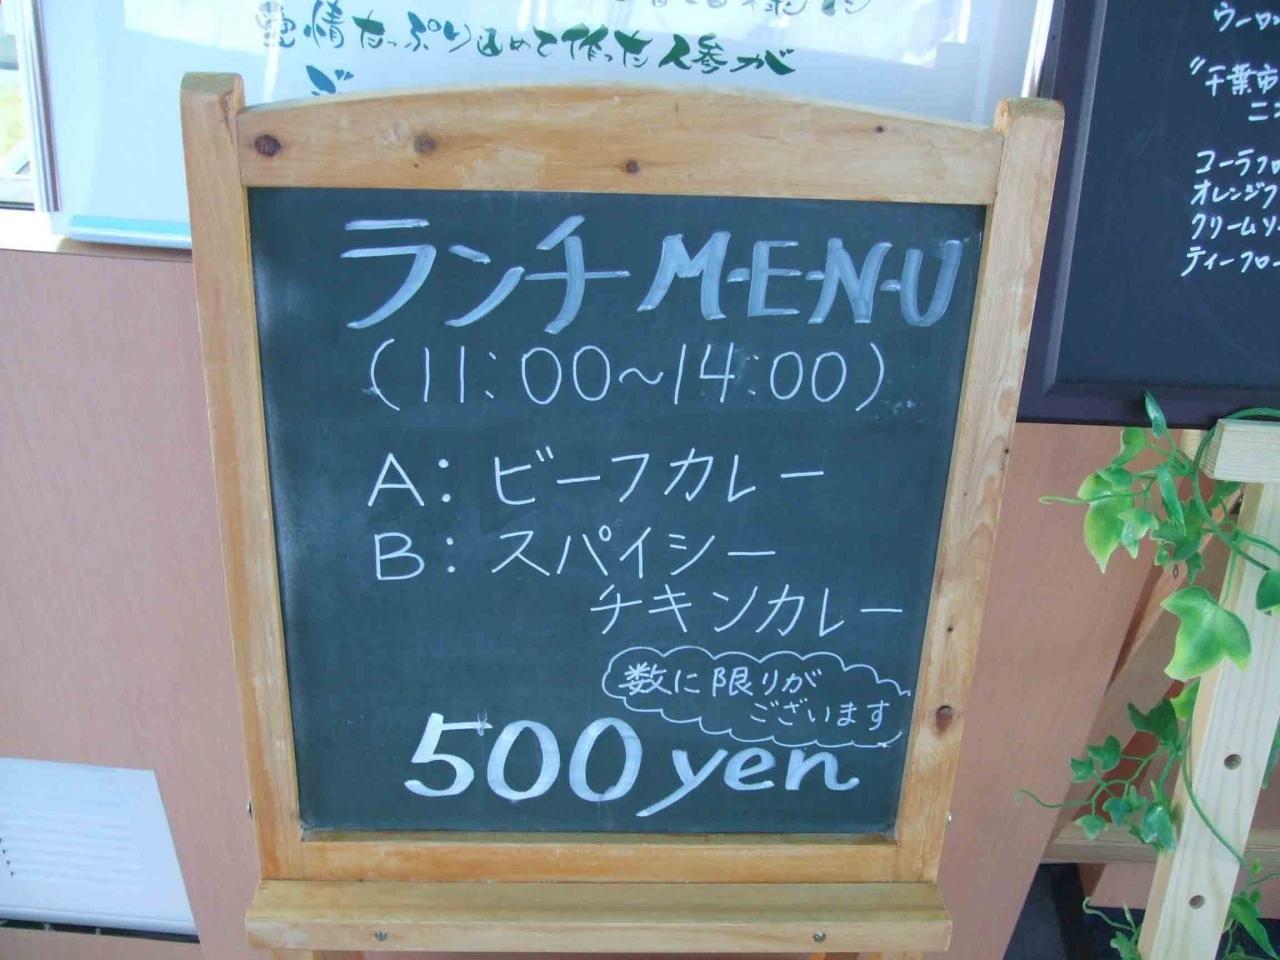 情たっぷり込めて作った人参が
ランチ M-E-N-U
(11:00～14:00)
A: ビーフカレー
B: スパイシー
チキンカレー
数に限りが
ございます
500 yen
ウーロン
"千葉市
コーラフロ
オレンジフ
クリームソ
ティーフロー